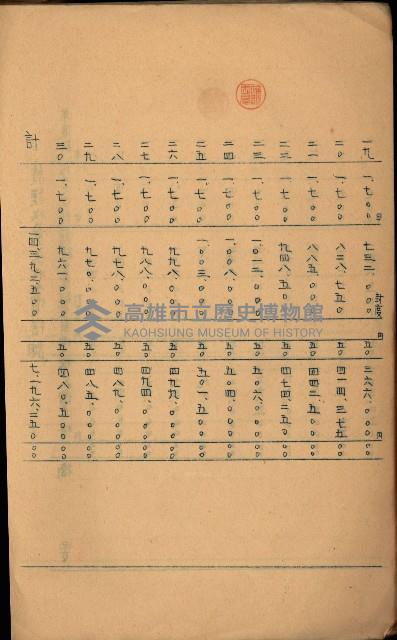 一九 一、七〇〇 七三二、〇〇〇 五〇 三六六、〇〇〇
二〇 一、七〇〇 八二八、七五〇 五〇 四一四、三七五
二一 一、七〇〇 八八五、〇〇〇 五〇 四四二、五〇〇
二二 一、七〇〇 九四八、五〇〇 五〇 四七四、二五〇
二三 一、七〇〇 一、〇一二、〇〇〇 五〇 五〇六、〇〇〇
二四 一、七〇〇 一、〇〇八、〇〇〇 五〇 五〇四、〇〇〇
二五 一、七〇〇 一、〇〇三、〇〇〇 五〇 五〇一、五〇〇
二六 一、七〇〇 九九八、〇〇〇 五〇 四九九、〇〇〇
二七 一、七〇〇 九八八、〇〇〇 五〇 四九四、〇〇〇
二八 一、七〇〇 九七八、〇〇〇 五〇 四八九、〇〇〇
二九 一、七〇〇 九七〇、〇〇〇 五〇 四八五、〇〇〇
三〇 一、七〇〇 九六一、〇〇〇 五〇 四八〇、五〇〇
計 一四、三九二、五〇〇 七、一九六、二五〇
高雄市立歷史博物館
KAOHSIUNG MUSEUM OF HISTORY